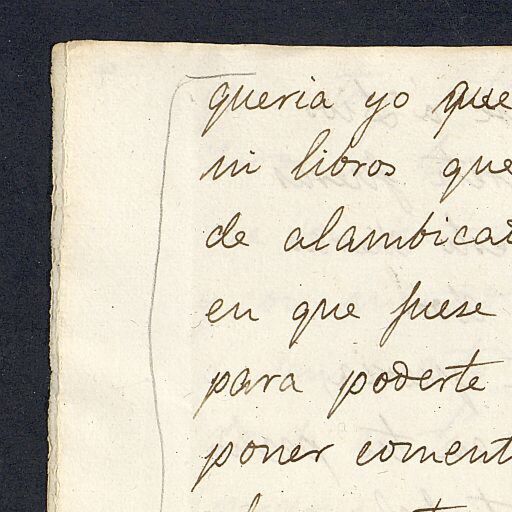 queria yo que
ni libros que
de alambicad
en que fuese
para poderte
poner coment